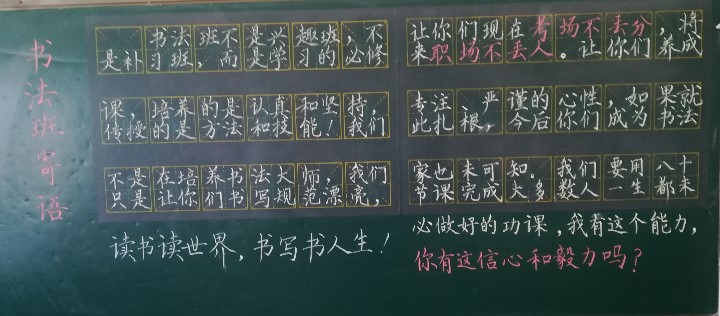 书法班寄语
书法班不是兴趣班，不
是补习班，而是学习的必修
课，培养的是认真和坚持，
传授的是方法和技能！我们
不是在培养书法大师，我们
只是让你们书写规范漂亮，
读书读世界，书写书人生！
让你们现在考场不丢分，将
来职场不丢人。让你们养成
专注、严谨的心性，如果就
此扎根，今后你们成为书法
家也未可知。我们要用八十
节课完成大多数人一生都未
必做好的功课，我有这个能力，
你有这信心和毅力吗？